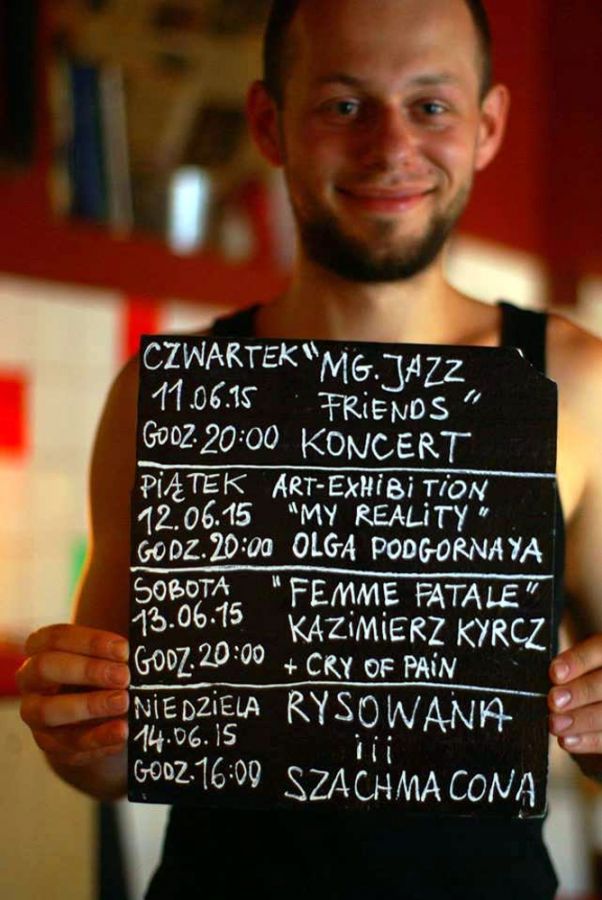 CZWARTEK "MG. JAZZ
11.06.15 FRIENDS"
GODZ. 20:00 KONCERT
PIĄTEK ART-EXHIBITION
12.06.15 "MY REALITY"
GODZ. 20:00 OLGA PODGORNAYA
SOBOTA "FEMME FATALE"
13.06.15 KAZIMIERZ KYRCZ
GODZ. 20:00 + CRY OF PAIN
NIEDZIELA RYSOWANA
14.06.15 iii
GODZ. 16:00 SZACHMACONA